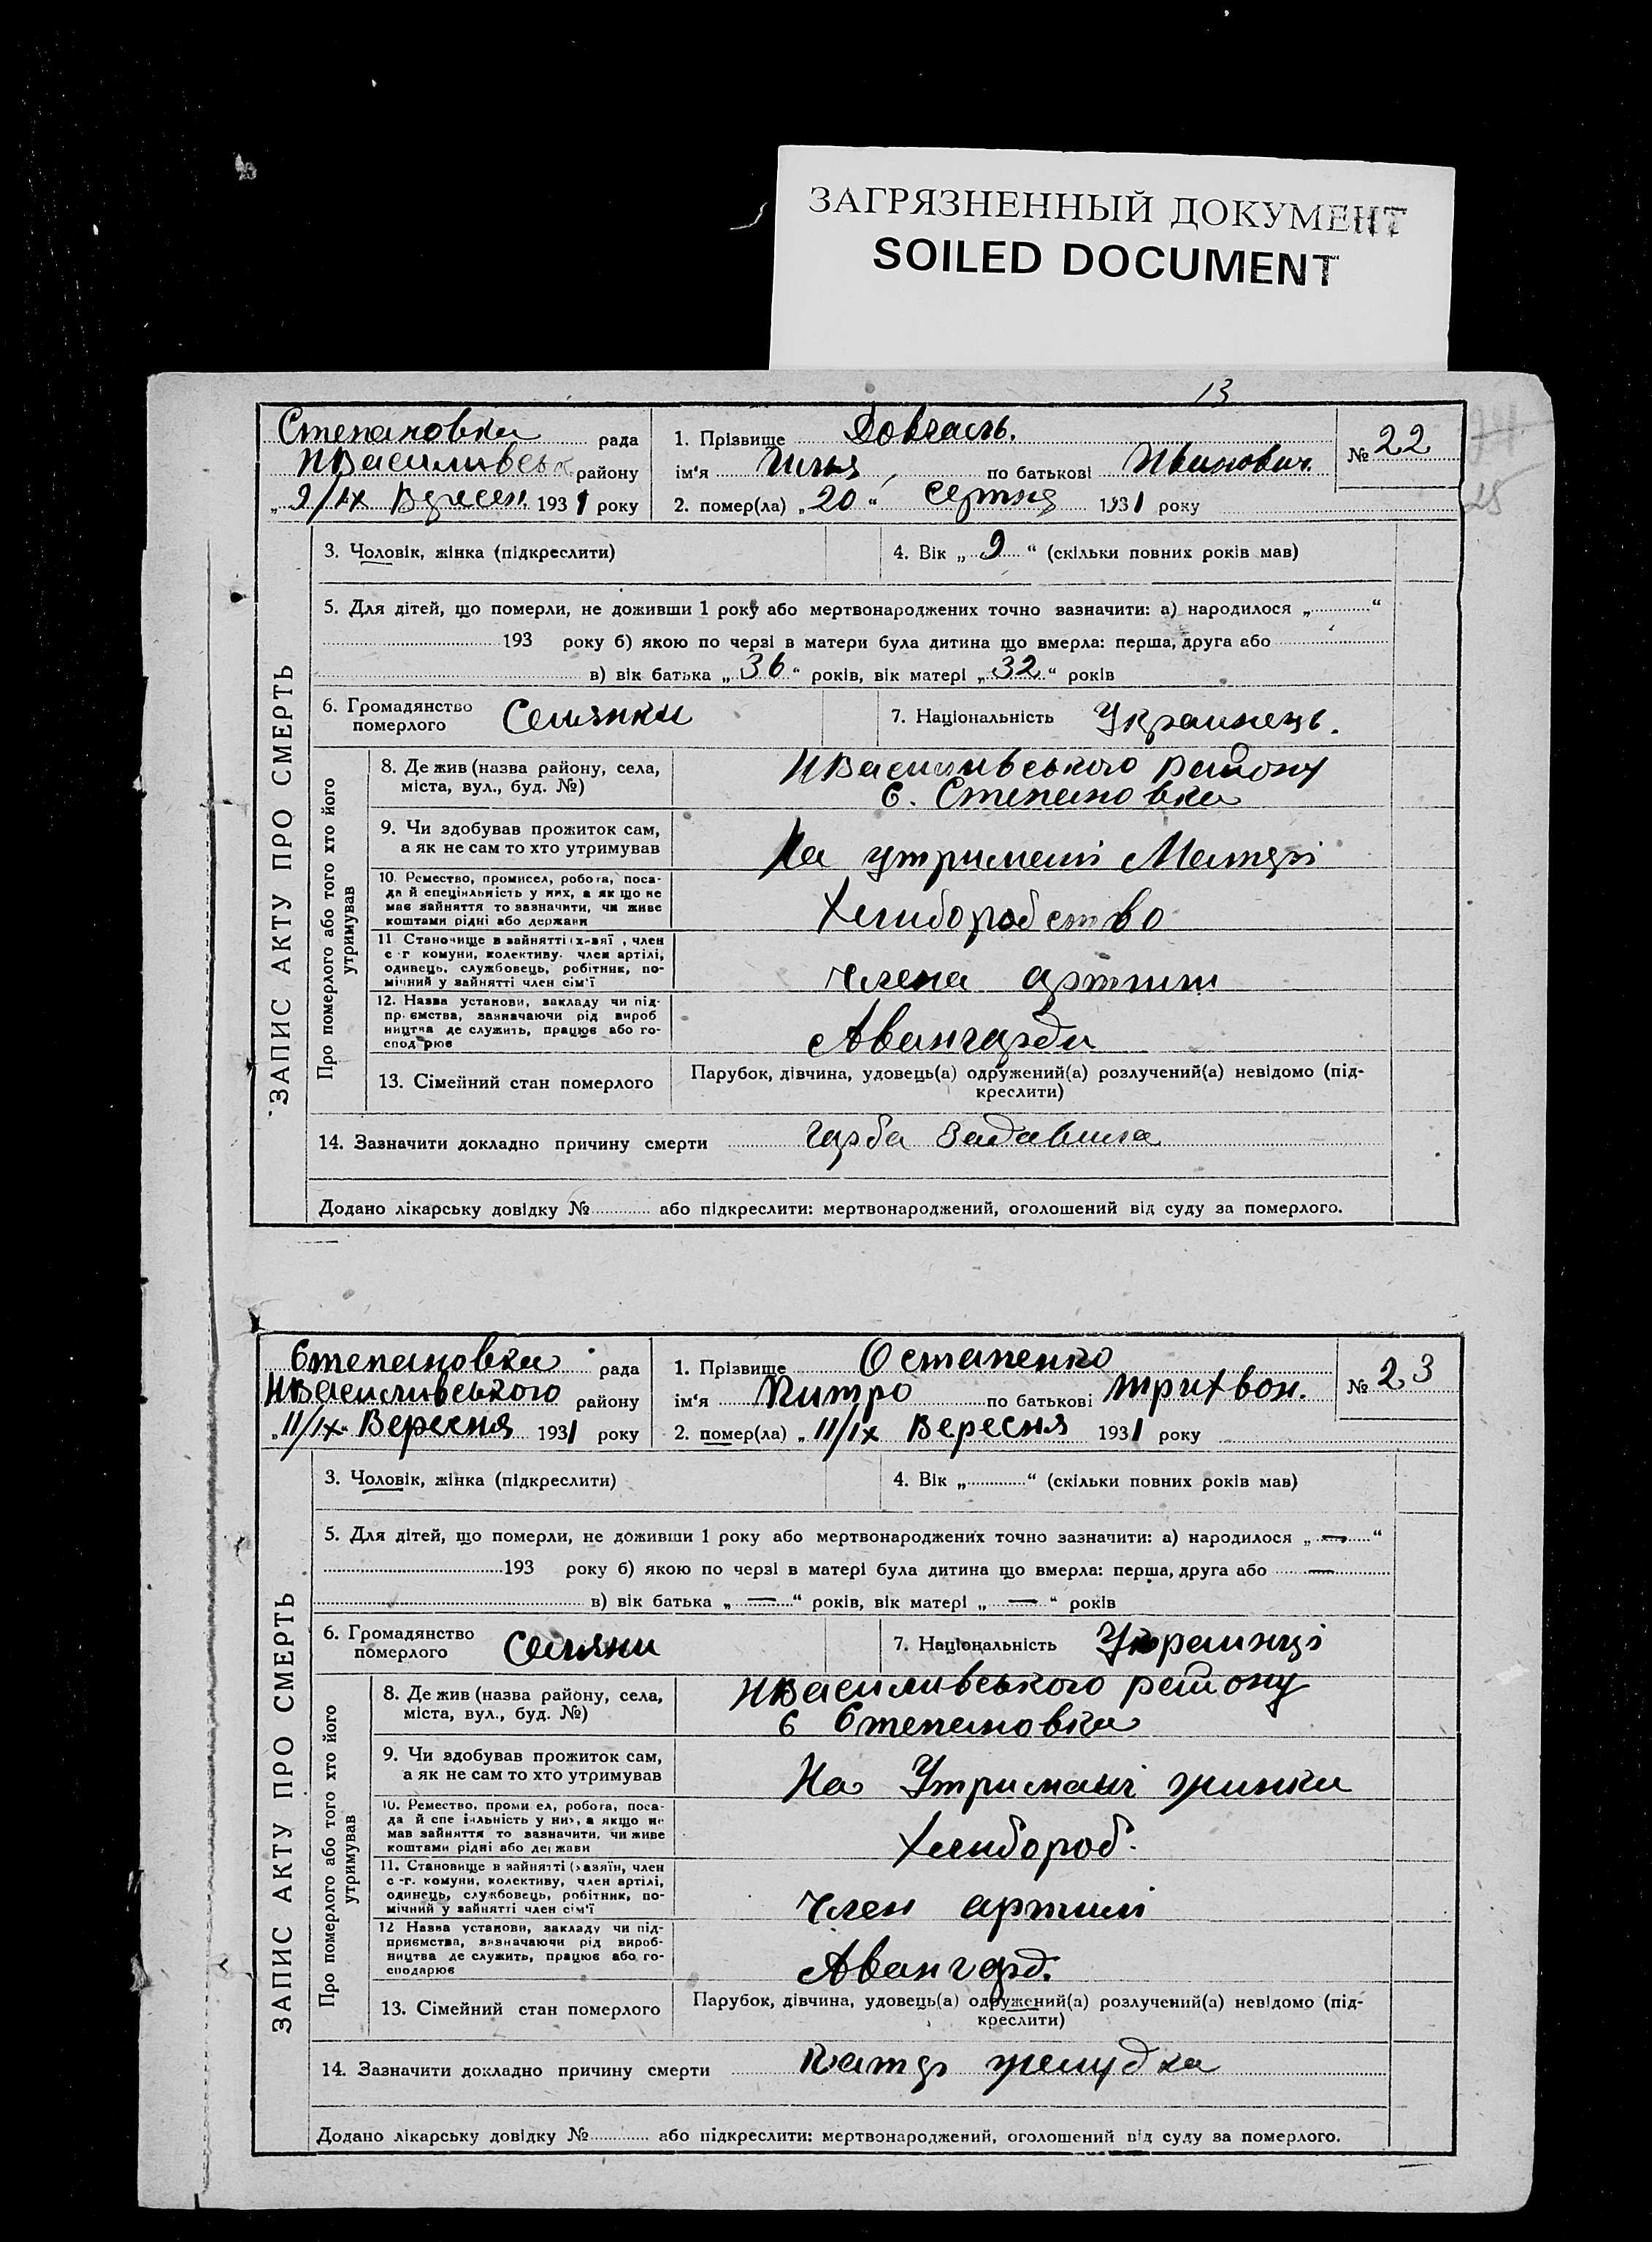 ЗАГРЯЗНЕННЫЙ ДОКУМЕНТ
SOILED DOCUMENT
13
Степановка рада
НВасилівськ району
„9/IX Вересен 1931 року
1. Прізвище Довгаль.
ім'я Илья по батькові Иванович.
2. помер(ла) „20" Серпня 1931 року
№ 22
25
ЗАПИС АКТУ ПРО СМЕРТЬ
3. Чоловік, жінка (підкреслити)
4. Вік „9" (скільки повних років мав)
5. Для дітей, що померли, не доживши 1 року або мертвонароджених точно вазначити: а) народилося „ "
193 року б) якою по черзі в матери була дитина що вмерла: перша, друга або
в) вік батька „36" років, вік матері „32" років
6. Громадянство
померлого Селянки
7. Національність Украинець.
Про померлого або того хто його
утримував
8. Де жив (назва району, села,
міста, вул., буд. №)
НВасиливського району
с. Степановка
9. Чи здобував прожиток сам,
а як не сам то хто утримував
На утримані Матері
10. Ремество, промисел, робота, поса-
да й спеціяльність у них, а як що не
має зайняття то зазначити, чи живе
коштами рідні або держави
Хлиборобство
11. Становище в зайнятті (х-зяї , член
с-г комуни, колективу, член артілі,
одинець, службовець, робітник, по-
мічний у зайнятті член сім'ї
члена артили
12. Назва установи, закладу чи під-
пр.ємства, зазначаючи рід вироб
ництва де служить, працює або го-
спод рює
Авангарди
13. Сімейний стан померлого
Парубок, дівчина, удовець(а) одружений(а) розлучений(а) невідомо (під-
креслити)
14. Зазначити докладно причину смерти гарба задавила
Додано лікарську довідку № або підкреслити: мертвонароджений, оголошений від суду за померлого.
Степановка рада
НВасиливського району
„11/IX" Вересня 1931 року
1. Прізвище Остапенко
ім'я Питро по батькові Трихвон.
2. помер(ла) „11/IX Вересня 1931 року
№ 23
ЗАПИС АКТУ ПРО СМЕРТЬ
3. Чоловік, жінка (підкреслити)
4. Вік „ " (скільки повних років мав)
5. Для дітей, що померли, не доживши 1 року або мертвонароджених точно зазначити: а) народилося „—"
193 року б) якою по черзі в матері була дитина що вмерла: перша, друга або —
в) вік батька „—" років, вік матері „—" років
6. Громадянство
померлого Селяни
7. Національність Украинці
Про померлого або того хто його
утримував
8. Де жив (назва району, села,
міста, вул., буд. №)
НВасиливського району
с Степановка
9. Чи здобував прожиток сам,
а як не сам то хто утримував
На Утримані жинки
10. Ремество, проми ел, робота, поса-
да й спе іяльність у них, а якщо не
мав зайняття то вазначити, чи живе
коштами рідні або держави
Хлибороб.
11. Становище в зайнятті (хазяїн, член
с-г. комуни, колективу, член артілі,
одинець, службовець, робітник, по-
мічний у зайнятті член сім'ї
Член артилі
12 Назва установи, закладу чи під-
приємства, зазначаючи рід вироб-
ництва де служить, працює або го-
сподарює
Авангард.
13. Сімейний стан померлого
Парубок, дівчина, удовець(а) одружений(а) розлучений(а) невідомо (під-
креслити)
14. Зазначити докладно причину смерти Катар желудка
Додано лікарську довідку № або підкреслити: мертвонароджений, оголошений від суду за померлого.